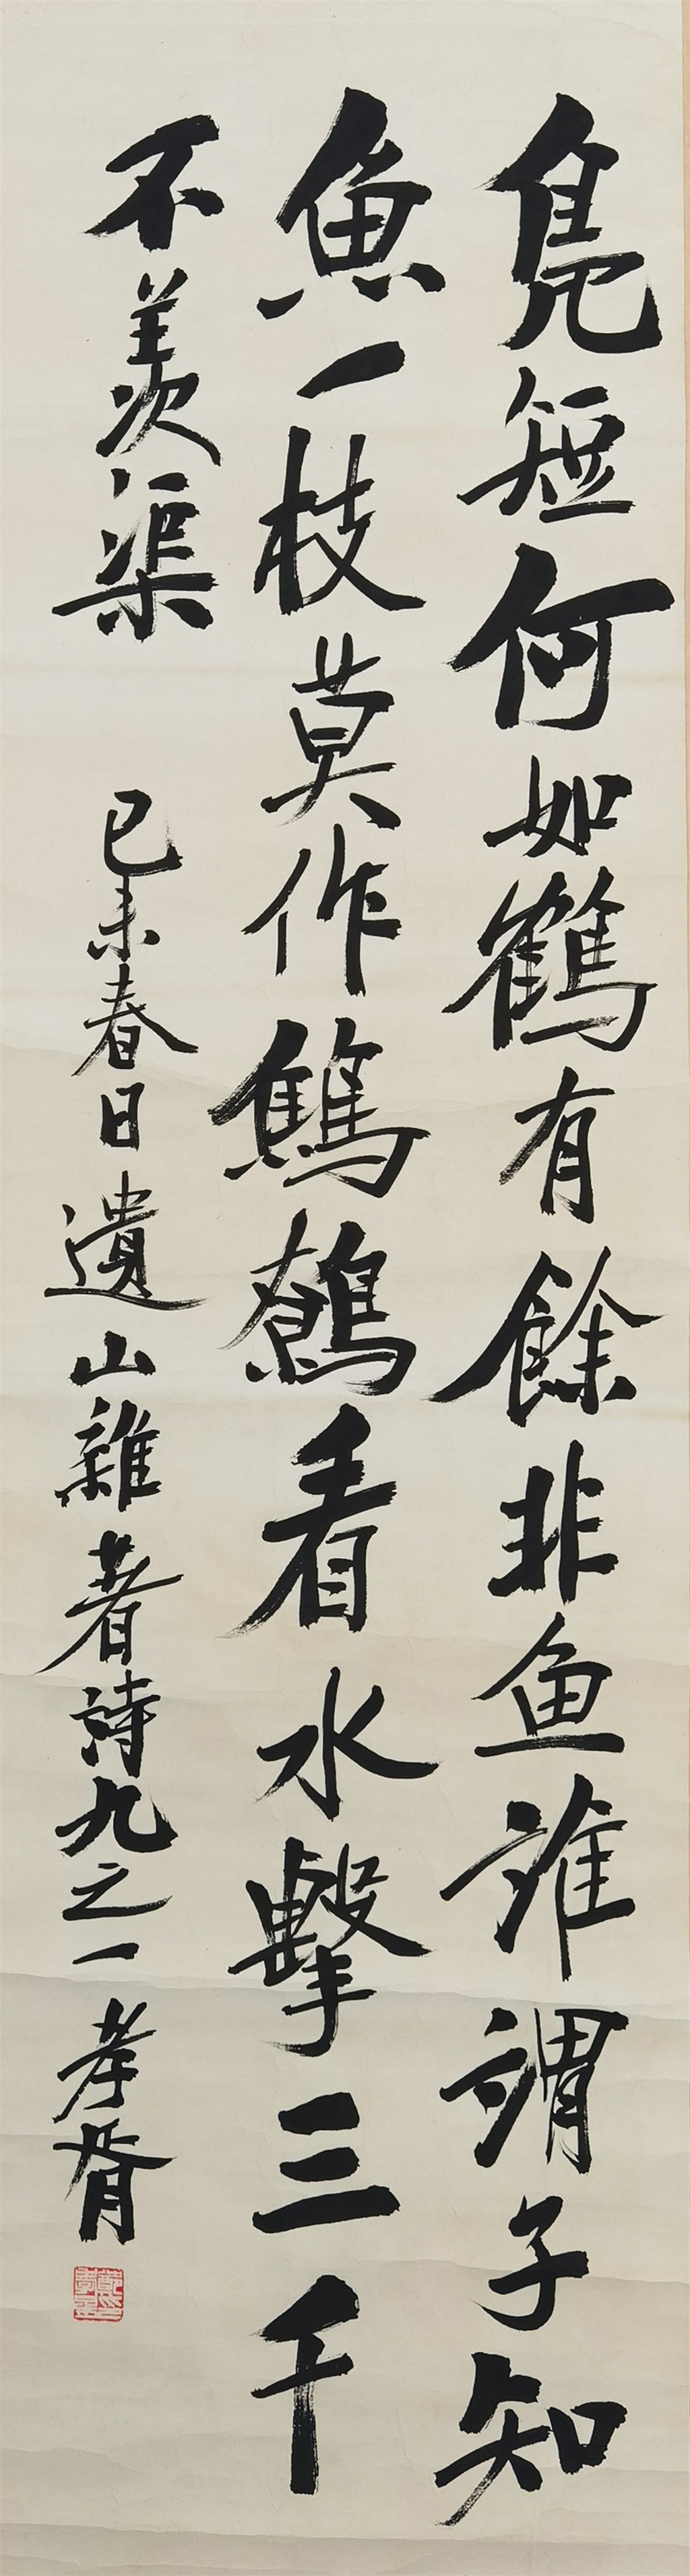 鳧短何如鶴有餘非魚誰謂子知
魚一枝莫作鷦鷯看水擊三千
不羨渠 己未春日遺山雜著詩九之一 孝胥